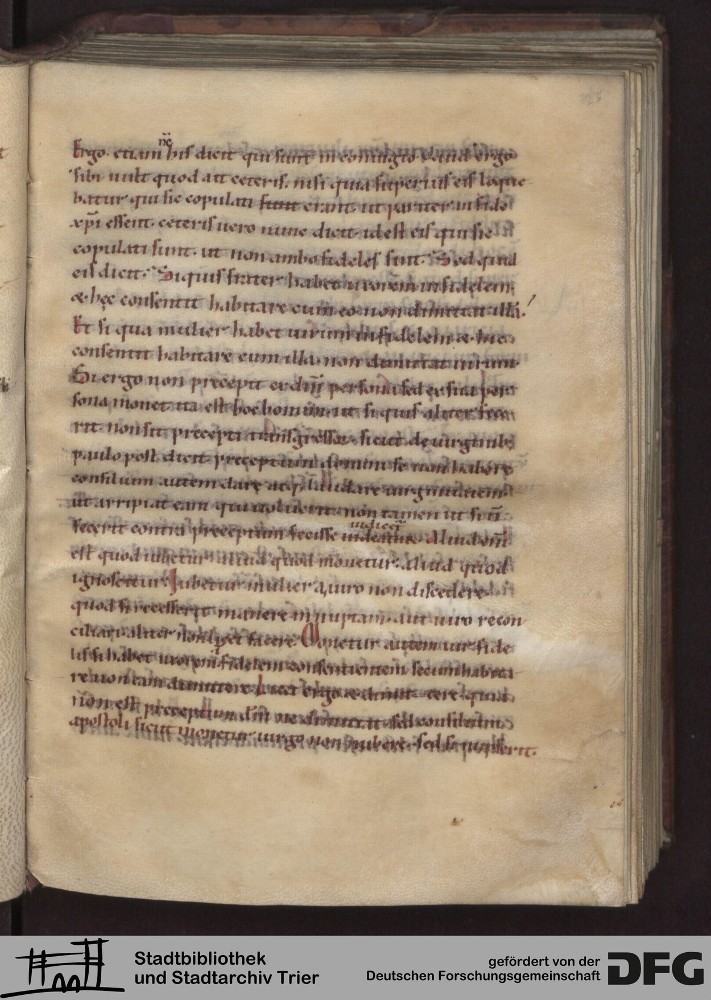 Ergo. etiam nc̄ his dicit qui sunt in coniugio. Quid ergo
sibi uult quod ait ceteris. nisi quia superius eis loque
batur. qui sic copulati sunt erant. ut pariter in fide
xpi essent. ceteris uero nunc dicit. id est eis qui sic
copulati sunt. ut non ambo fideles sint. Sed quid
eis dicit. Siquis frater habet uxorem infidelem.
& hęc consentit habitare cum eo. non dimittat illā.
Et si qua mulier habet uirum infidelem & hic
consentit habitare cum illa. non dimittat uirum.
Si ergo non precepit ex dn̄i persona sed ex sua per
sona monet. ita est hoc bonum. ut si quis aliter fece
rit. non sit precepti transgressor. sicut de uirginib;
paulo post dicit. preceptum domini se non habere
consilium autem dare.
ut arripiat eam qui uoluerit. non tamen ut si n̄
fecerit contra preceptum fecisse uideatur. Aliud enī
est quod iubetur. aliud quod monetur. aliud quod
ignoscitur. Iubetur mulier a uiro non discedere.
quod si recesserit. manere innuptam. aut uiro recon
ciliari. aliter non licet facere. Monetur autem uir fide
lis si habet uxorem infidelem consentientem secum habita
re. non eam dimittere. Licet ergo & dimittere. quia
non est preceptum dn̄i ne dimittat. sed consilium
apostoli. sicut monetur uirgo non nubere. sed
Stadtbibliothek
und Stadtarchiv Trier
gefördert von der
Deutschen Forschungsgemeinschaft
DFG